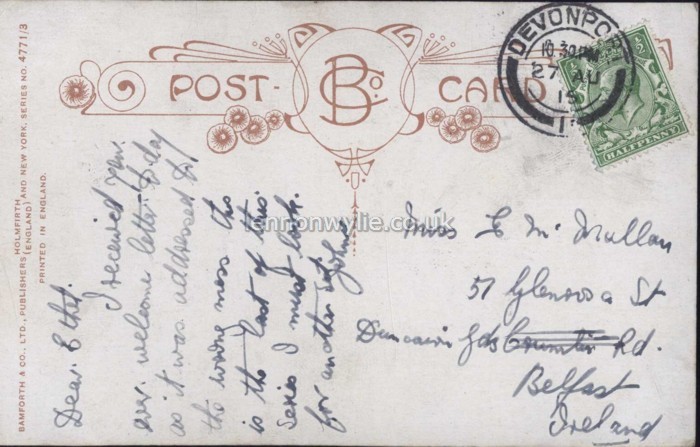 BAMFORTH & CO., LTD., PUBLISHERS HOLMFIRTH (ENGLAND) AND NEW YORK. SERIES NO. 4771/3
PRINTED IN ENGLAND.
POST-CARD
B Co
DEVONPO
10.30 PM
27 AU
15
HALFPENNY
Dear Ethel.
I received your
ever welcome letter to day
as it was addressed to
the wrong mess this
is the last of this
series I must look
for another set
John
lennonwylie.co.uk
Miss E McMullan
57 Glenrosa St
Duncairn Gds Rd.
Belfast
Ireland